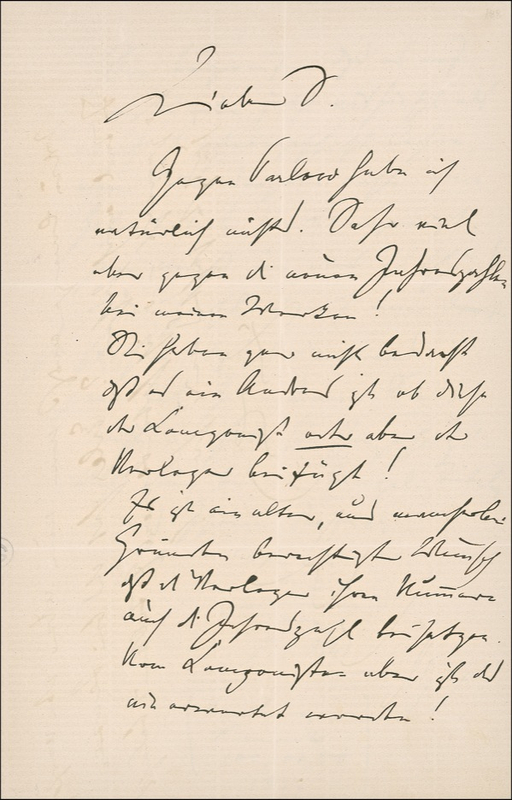 Lieber S.
Gegen Parlow habe ich
natürlich nichts. Sehr viel
aber gegen die neuen Jahreszahlen
bei meinen Werken!
Sie haben gar nicht bedacht
daß es ein Anderes ist ob diese
der Componist oder aber der
Verleger beifügt!
Es ist ein alter, und
Gründen berechtigter Wunsch
daß die Verleger ihren Numern
auch die Jahreszahl beisetzen.
Vom Componisten aber ist das
nie erwartet worden!